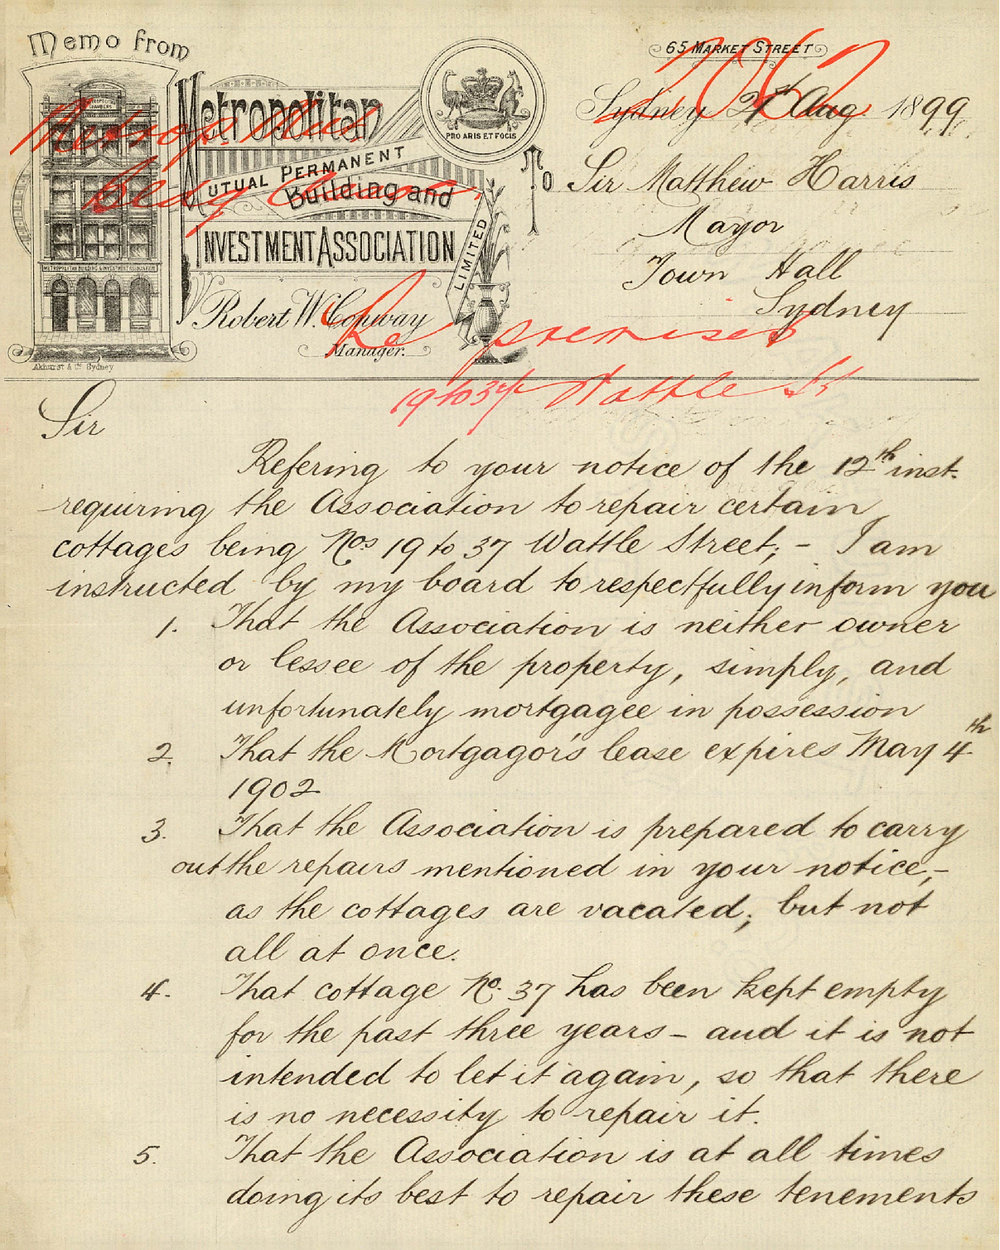 Memo from
Metropolitan
Mutual Permanent
Building and
Investment Association
Limited
Robert W. Conway
Manager.
Akhurst & Co Sydney
METROPOLITAN BUILDING & INVESTMENT ASSOCIATION
PRO ARIS ET FOCIS
65 Market Street
2062
Sydney Aug 1899
To Sir Matthew Harris
Mayor
Town Hall
Sydney
Metropolitan
re premises
19 to 37 Wattle St
Sir
Refering to your notice of the 12th inst.
requiring the Association to repair certain
cottages being Nos 19 to 37 Wattle Street; - I am
instructed by my board to respectfully inform you
1. That the Association is neither owner
or lessee of the property, simply, and
unfortunately mortgagee in possession
2. That the Mortgagor's lease expires May 4th
1902
3. That the Association is prepared to carry
out the repairs mentioned in your notice,-
as the cottages are vacated; but not
all at once.
4. That cottage No. 37 has been kept empty
for the past three years - and it is not
intended to let it again, so that there
is no necessity to repair it.
5. That the Association is at all times
doing its best to repair these tenements